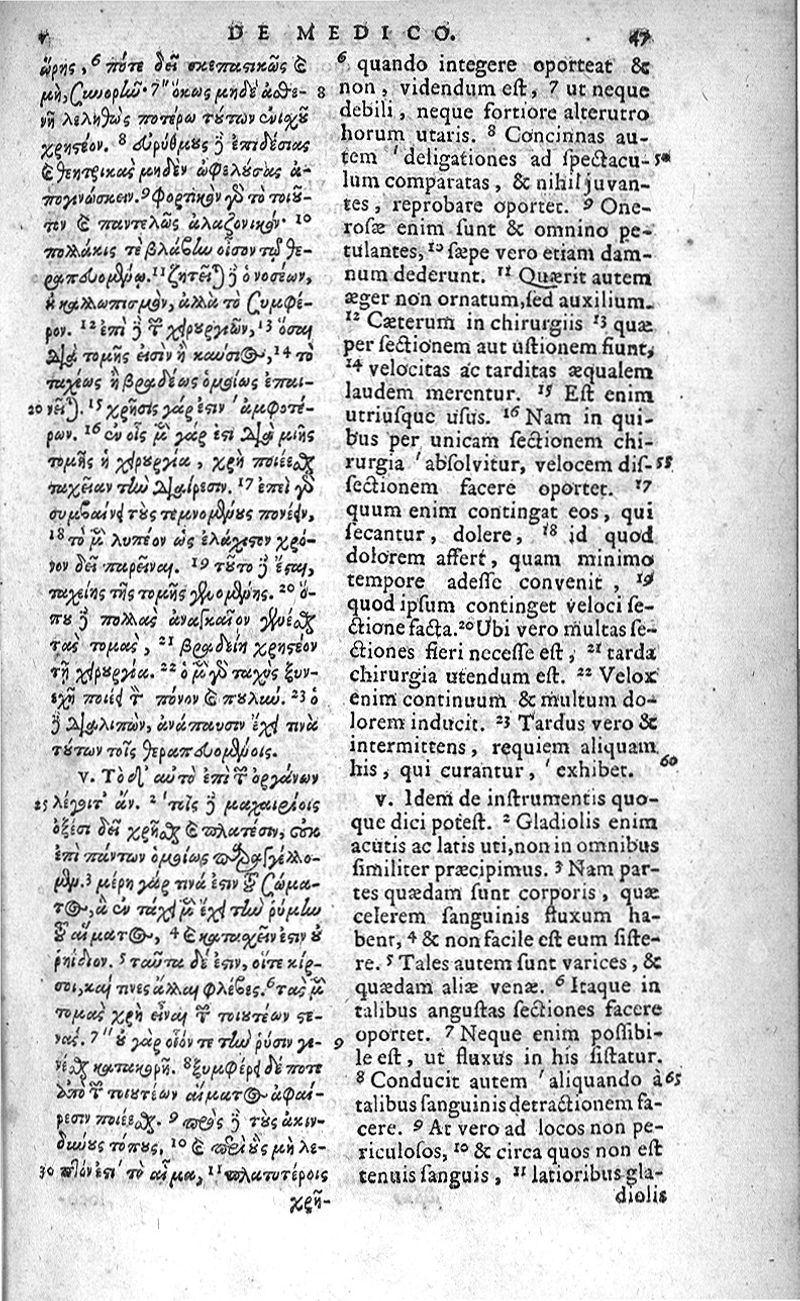 v DE MEDICO. 47
ὥρης, 6 πότε δεῖ σκεπαστικῶς καὶ
μὴ, ξυνορῶν. 7 ὅκως μηδὲ ἀσθε- 8
νῆ λεληθὼς ποτέρῳ τούτων ἐνισχυ
χρηστέον. 8 εὐρύθμους δὲ ἐπιδέσιας
καὶ θεητρικὰς μηδὲν ὠφελούσας ἀ-
πογινώσκειν. 9 φορτικὸν γὰρ τὸ τοιοῦ-
τον καὶ παντελῶς ἀλαζονικόν. 10
πολλάκις τε βλάβην οἶσον τῷ θε-
ραπευομένῳ. 11 ζητεῖται δὲ ὁ νοσέων,
οὐ καλλωπισμὸν, ἀλλὰ τὸ ξυμφέ-
ρον. 12 ἐπὶ δὲ τῶν χειρουργιῶν, 13 ὅσαι
διὰ τομῆς εἰσὶν ἢ καύσιος, 14 τὸ
ταχέως ἢ βραδέως ὁμοίως ἐπαι-
20 νεῖται. 15 χρῆσις γάρ ἐστιν ἀμφοτέ-
ρων. 16 ἐν οἷς μὲν γάρ ἐστι διὰ μιῆς
τομῆς ἡ χειρουργία, χρὴ ποιέεσθαι
ταχεῖαν τὴν διαίρεσιν. 17 ἐπεὶ γὰρ
συμβαίνει τοὺς τεμνομένους πονέειν,
18 τὸ μὲν λυπέον ὡς ἐλάχιστον χρό-
νον δεῖ παρεῖναι. 19 τοῦτο δὲ ἔσται,
ταχείης τῆς τομῆς γινομένης. 20 ὅ-
που δὲ πολλὰς ἀναγκαῖον γινέεσθαι
τὰς τομὰς, 21 βραδείῃ χρηστέον
τῇ χειρουργίᾳ. 22 ὁ μὲν γὰρ ταχὺς ξυν-
εχῆ ποιέει τὸν πόνον καὶ πουλύν. 23 ὁ
δὲ διαλιπὼν, ἀνάπαυσιν ἔχει τινὰ
τούτων τοῖς θεραπευομένοις.
v. Τὸ δ' αὐτὸ ἐπὶ τῶν ὀργάνων
25 λέγοιτ' ἄν. 2 ταῖς δὲ μαχαιρίοις
ὀξέσι δεῖ χρῆσθαι καὶ πλατέσιν, οὐκ
ἐπὶ πάντων ὁμοίως παραγέλλο-
μεν. 3 μέρη γάρ τινά ἐστιν τοῦ σώμα-
τος, ἃ ἐν τάχει μὲν ἔχει τὴν ῥύμην
τοῦ αἵματος, 4 καὶ κατασχεῖν ἐστιν οὐ
ῥηΐδιον. 5 ταῦτα δέ ἐστιν, οἵ τε κίρ-
σοι, καί τινες ἄλλαι φλέβες. 6 τὰς μὲν
τομὰς χρὴ εἶναι τῶν τοιουτέων στε-
νάς. 7 οὐ γὰρ οἷόν τε τὴν ῥύσιν γε- 9
νέσθαι κατακορῆ. 8 ξυμφέρει δέ ποτε
ἀπὸ τῶν τοιουτέων αἵματος ἀφαί-
ρεσιν ποιέεσθαι. 9 πρὸς δὲ τοὺς ἀκιν-
δύνους τόπους, 10 καὶ περὶ οὓς μὴ λε-
30 πτόν ἐστι τὸ αἷμα, 11 πλατυτέροις
χρῆ-
6 quando integere oporteat &
non, videndum eſt, 7 ut neque
debili, neque fortiore alterutro
horum utaris. 8 Concinnas au-
tem deligationes ad ſpectacu- 50
lum comparatas, & nihil juvan-
tes, reprobare oportet. 9 One-
roſæ enim ſunt & omnino pe-
tulantes, 10 ſæpe vero etiam dam-
num dederunt. 11 Quærit autem
æger non ornatum, ſed auxilium.
12 Cæterum in chirurgiis 13 quæ
per ſectionem aut uſtionem fiunt,
14 velocitas ac tarditas æqualem
laudem merentur. 15 Eſt enim
utriuſque uſus. 16 Nam in qui-
bus per unicam ſectionem chi-
rurgia abſolvitur, velocem diſ- 55
ſectionem facere oportet. 17
quum enim contingat eos, qui
ſecantur, dolere, 18 id quod
dolorem affert, quam minimo
tempore adeſſe convenit, 19
quod ipſum continget veloci ſe-
ctione facta. 20 Ubi vero multas ſe-
ctiones fieri neceſſe eſt, 21 tarda
chirurgia utendum eſt. 22 Velox
enim continuum & multum do-
lorem inducit. 23 Tardus vero &
intermittens, requiem aliquam
his, qui curantur, exhibet. 60
v. Idem de inſtrumentis quo-
que dici poteſt. 2 Gladiolis enim
acutis ac latis uti, non in omnibus
ſimiliter præcipimus. 3 Nam par-
tes quædam ſunt corporis, quæ
celerem ſanguinis fluxum ha-
bent, 4 & non facile eſt eum ſiſte-
re. 5 Tales autem ſunt varices, &
quædam aliæ venæ. 6 Itaque in
talibus anguſtas ſectiones facere
oportet. 7 Neque enim poſſibi-
le eſt, ut fluxus in his ſiſtatur.
8 Conducit autem aliquando à 65
talibus ſanguinis detractionem fa-
cere. 9 At vero ad locos non pe-
riculoſos, 10 & circa quos non eſt
tenuis ſanguis, 11 latioribus gla-
diolis